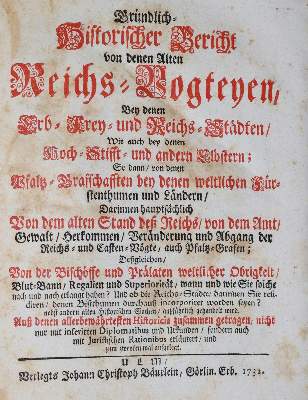 Gründlich-
Historischer Bericht
von denen Alten
Reichs-Vogteyen/
Bey denen
Erb- Frey- und Reichs-Städten/
Wie auch bey denen
Hoch-Stifft- und andern Clöstern;
So dann/ von denen
Pfaltz-Grafschafften bey denen weltlichen Für-
stenthumen und Ländern/
Darinnen hauptsächlich
Von dem alten Stand deß Reichs/ von dem Amt/
Gewalt/ Herkommen/ Veränderung und Abgang der
Reichs- und Casten-Vögte/ auch Pfaltz-Grafen;
Deßgleichen/
Von der Bischöffe und Prälaten weltlicher Obrigkeit/
Blut-Bann/ Regalien und Superiorität/ wann und wie Sie solche
nach und nach erlanget haben? Und ob die Reichs-Städte/ darinnen Sie resi-
diren/ denen Bisthumen incorporiret worden seyen?
nebst andern alten Historischen gehandelt wird.
Auß denen allerbewährtesten Historicis zusammen getragen/ nicht
nur mit inserirten Diplomatibus und Urkunden/ sondern auch
mit Juristischen Rationibus erläutert/ und
zum
ULM/
Verlegts Johann Christoph Bäurlein/ Görlin. Erb. 1732.